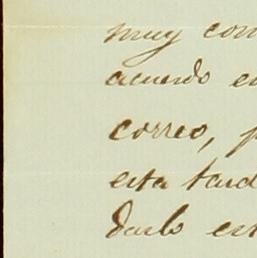 muy con
acuerdo e
correo, p
esta tard
darlo est